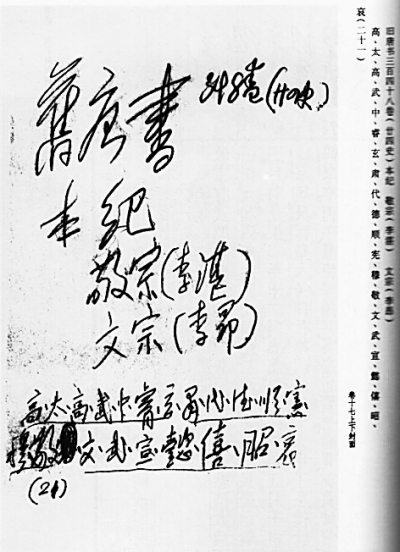 旧唐书三百四十八卷(廿四史)本纪 敬宗(李湛) 文宗(李昂)
高、太、高、武、中、睿、玄、肃、代、德、顺、宪、穆、敬、文、武、宣、懿、僖、昭、
哀(二十一)
卷十七上下封面
舊唐書 348卷(廿四史)
本紀
敬宗(李湛)
文宗(李昂)
高、太、高、武、中、睿、玄、肃、代、德、順、憲
穆、敬、文、武、宣、懿、僖、昭、哀
(21)